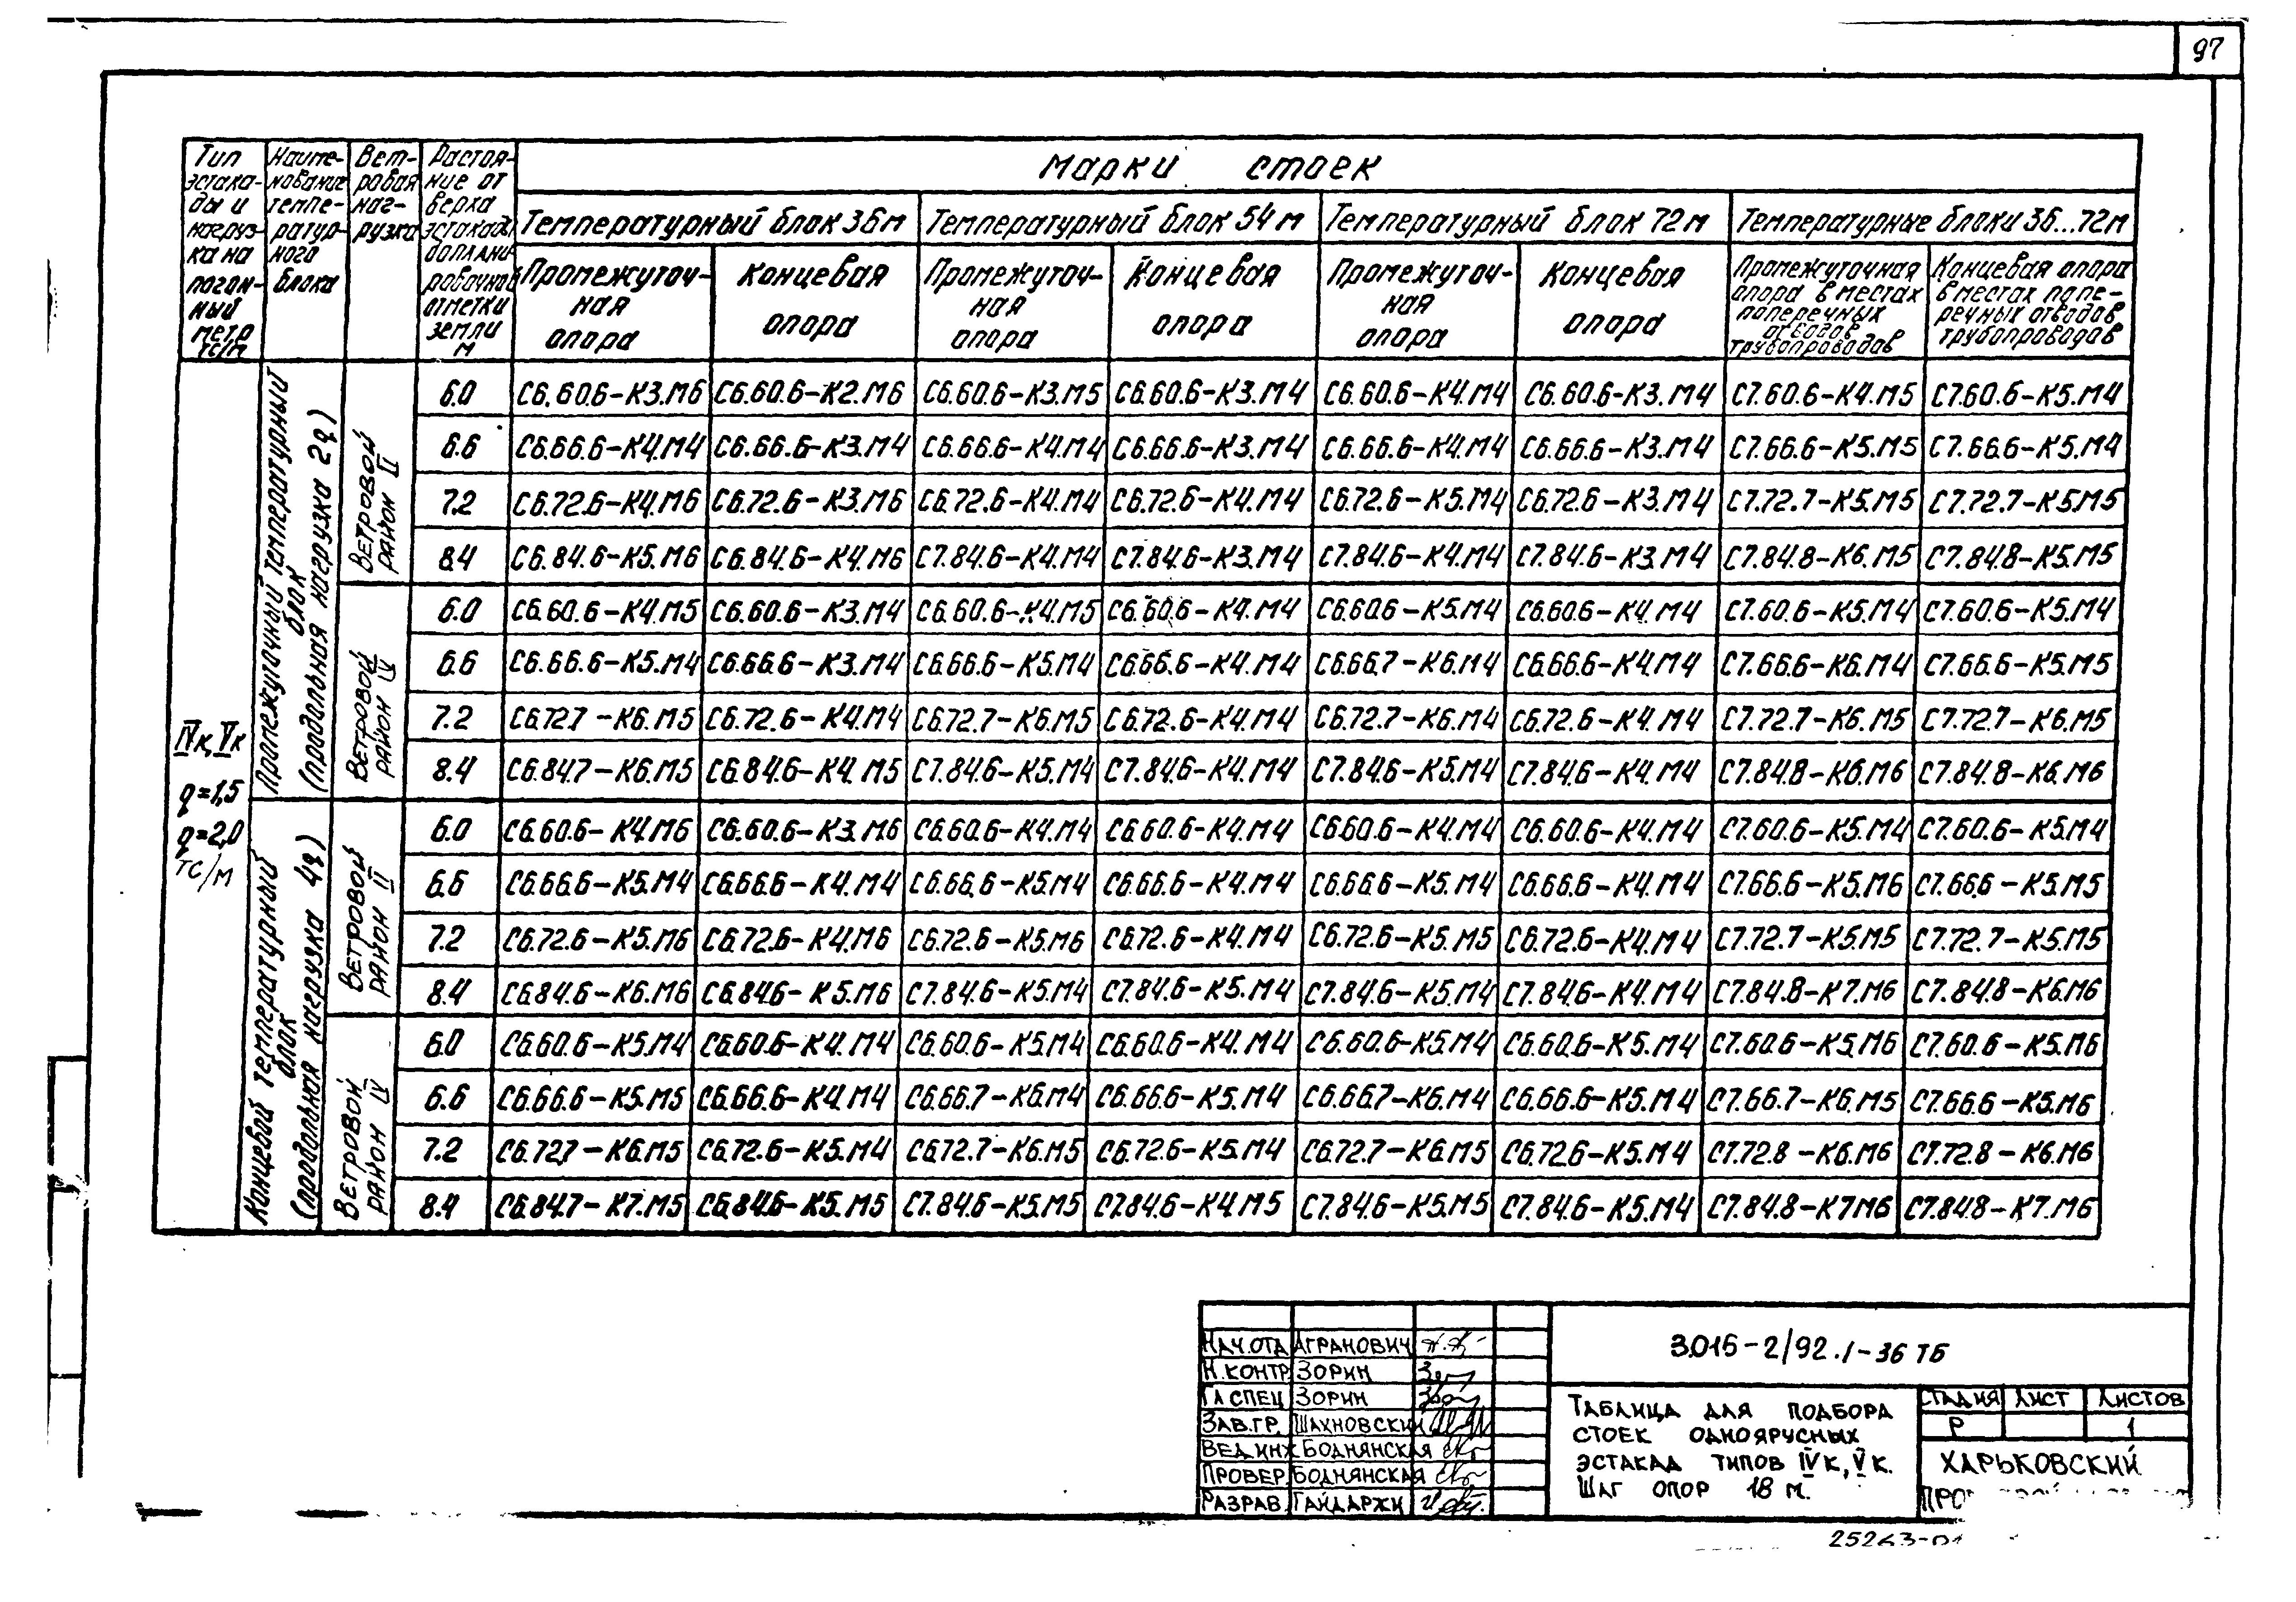 97
Тип эстакады и нагрузка на погонный метр тс/м
Наименование температурного блока
Ветровая нагрузка
Расстояние от верха эстакады до планировочной отметки земли м
Марки стоек
Температурный блок 36м
Температурный блок 54м
Температурный блок 72м
Температурные блоки 36...72м
Промежуточная опора
Концевая опора
Промежуточная опора
Концевая опора
Промежуточная опора
Концевая опора
Промежуточная опора в местах поперечных отводов трубопроводов
Концевая опора в местах поперечных отводов трубопроводов
IVк, Vк
q=1,5
q=2,0
тс/м
Промежуточный температурный блок (продольная нагрузка 2q)
Ветровой район II
6.0 С6.60.6-К3.М6 С6.60.6-К2.М6 С6.60.6-К3.М5 С6.60.6-К3.М4 С6.60.6-К4.М4 С6.60.6-К3.М4 С7.60.6-К4.М5 С7.60.6-К5.М4
6.6 С6.66.6-К4.М4 С6.66.6-К3.М4 С6.66.6-К4.М4 С6.66.6-К3.М4 С6.66.6-К4.М4 С6.66.6-К3.М4 С7.66.6-К5.М5 С7.66.6-К5.М4
7.2 С6.72.6-К4.М6 С6.72.6-К3.М6 С6.72.6-К4.М4 С6.72.6-К4.М4 С6.72.6-К5.М4 С6.72.6-К3.М4 С7.72.7-К5.М5 С7.72.7-К5.М5
8.4 С6.84.6-К5.М6 С6.84.6-К4.М6 С7.84.6-К4.М4 С7.84.6-К3.М4 С7.84.6-К4.М4 С7.84.6-К3.М4 С7.84.8-К6.М5 С7.84.8-К5.М5
Ветровой район IV
6.0 С6.60.6-К4.М5 С6.60.6-К3.М4 С6.60.6-К4.М5 С6.60.6-К4.М4 С6.60.6-К5.М4 С6.60.6-К4.М4 С7.60.6-К5.М4 С7.60.6-К5.М4
6.6 С6.66.6-К5.М4 С6.66.6-К3.М4 С6.66.6-К5.М4 С6.66.6-К4.М4 С6.66.7-К6.М4 С6.66.6-К4.М4 С7.66.6-К6.М4 С7.66.6-К5.М5
7.2 С6.72.7-К6.М5 С6.72.6-К4.М4 С6.72.7-К6.М5 С6.72.6-К4.М4 С6.72.7-К6.М4 С6.72.6-К4.М4 С7.72.7-К6.М5 С7.72.7-К6.М5
8.4 С6.84.7-К6.М5 С6.84.6-К4.М5 С7.84.6-К5.М4 С7.84.6-К4.М4 С7.84.6-К5.М4 С7.84.6-К4.М4 С7.84.8-К6.М6 С7.84.8-К6.М6
Концевой температурный блок (продольная нагрузка 4q)
Ветровой район II
6.0 С6.60.6-К4.М6 С6.60.6-К3.М6 С6.60.6-К4.М4 С6.60.6-К4.М4 С6.60.6-К4.М4 С6.60.6-К4.М4 С7.60.6-К5.М4 С7.60.6-К5.М4
6.6 С6.66.6-К5.М4 С6.66.6-К4.М4 С6.66.6-К5.М4 С6.66.6-К4.М4 С6.66.6-К5.М4 С6.66.6-К4.М4 С7.66.6-К5.М6 С7.66.6-К5.М5
7.2 С6.72.6-К5.М6 С6.72.6-К4.М6 С6.72.6-К5.М6 С6.72.6-К4.М4 С6.72.6-К5.М5 С6.72.6-К4.М4 С7.72.7-К5.М5 С7.72.7-К5.М5
8.4 С6.84.6-К6.М6 С6.84.6-К5.М6 С7.84.6-К5.М4 С7.84.6-К5.М4 С7.84.6-К5.М4 С7.84.6-К4.М4 С7.84.8-К7.М6 С7.84.8-К6.М6
Ветровой район IV
6.0 С6.60.6-К5.М4 С6.60.6-К4.М4 С6.60.6-К5.М4 С6.60.6-К4.М4 С6.60.6-К5.М4 С6.60.6-К5.М4 С7.60.6-К5.М6 С7.60.6-К5.М6
6.6 С6.66.6-К5.М5 С6.66.6-К4.М4 С6.66.7-К6.М4 С6.66.6-К5.М4 С6.66.7-К6.М4 С6.66.6-К5.М4 С7.66.7-К6.М5 С7.66.6-К5.М6
7.2 С6.72.7-К6.М5 С6.72.6-К5.М4 С6.72.7-К6.М5 С6.72.6-К5.М4 С6.72.7-К6.М5 С6.72.6-К5.М4 С7.72.8-К6.М6 С7.72.8-К6.М6
8.4 С6.84.7-К7.М5 С6.84.6-К5.М5 С7.84.6-К5.М5 С7.84.6-К4.М5 С7.84.6-К5.М5 С7.84.6-К5.М4 С7.84.8-К7М6 С7.84.8-К7.М6
Нач.отд Агранович
Н.контр Зорин
Гл спец Зорин
Зав.гр. Шахновский
Вед.инж Боднянская
Провер. Боднянская
Разраб. Гайдаржи
3.016-2/92.1-36 ТБ
Таблица для подбора
стоек одноярусных
эстакад типов IVк, Vк.
Шаг опор 18 м.
Стадия Лист Листов
Р 1
Харьковский
25263-01